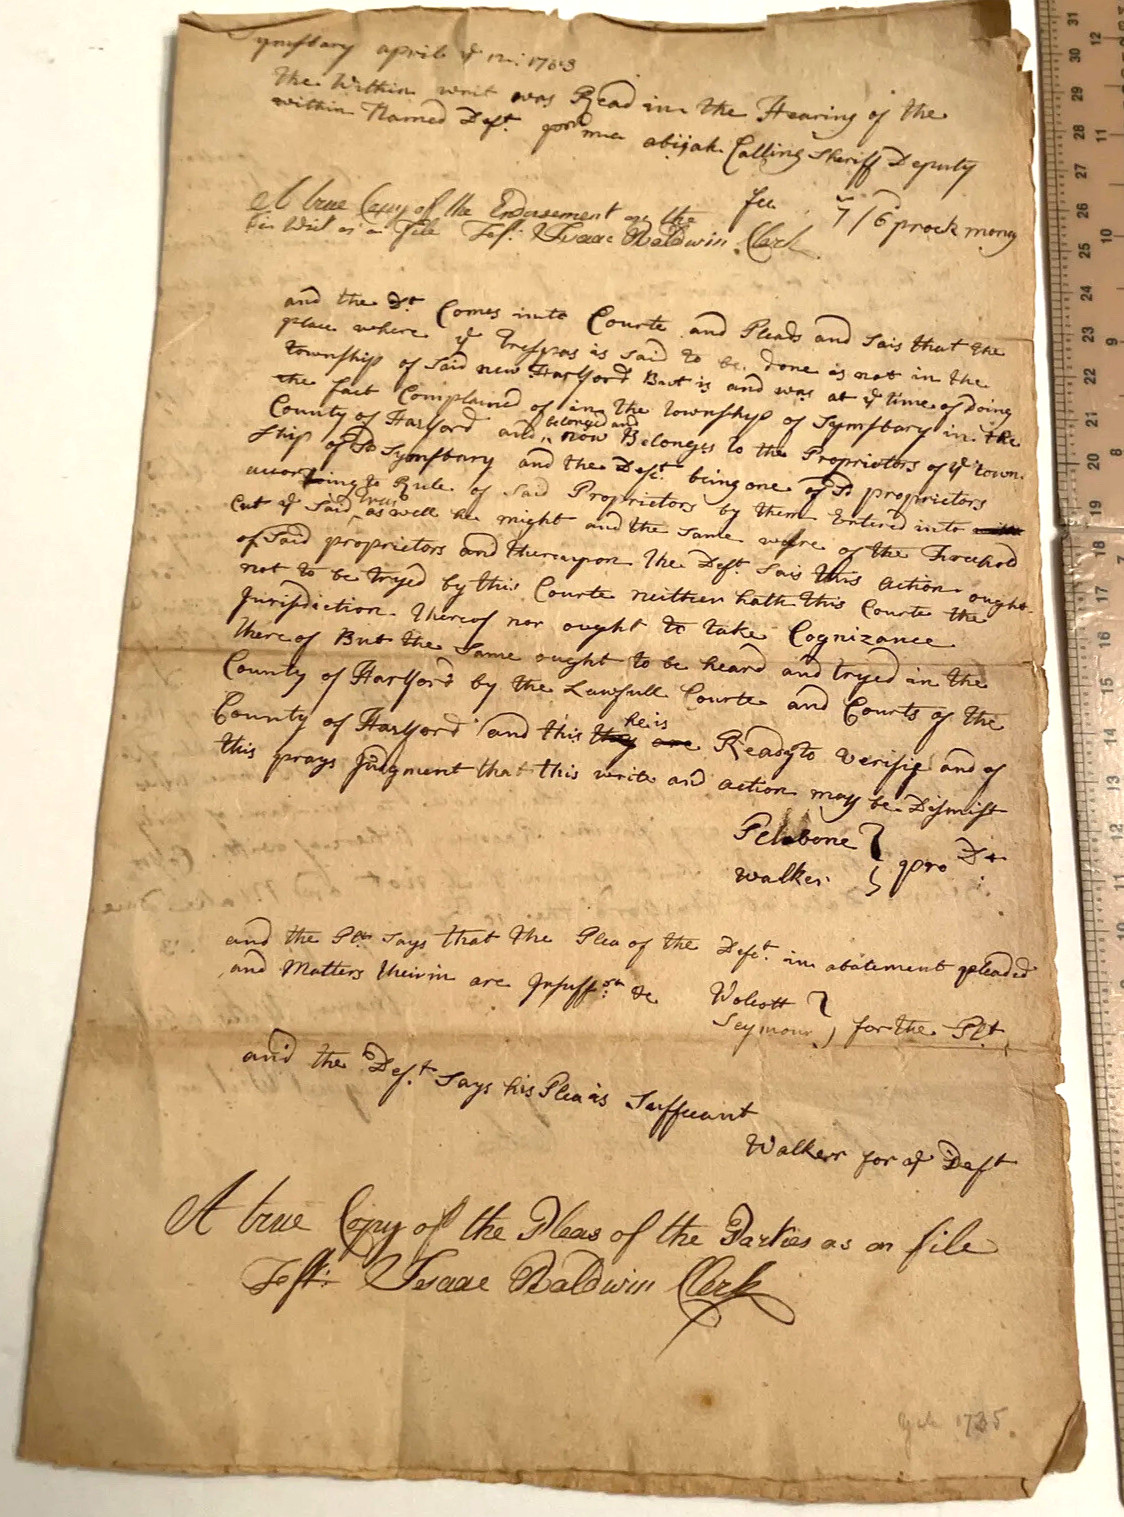 Symsbary april ye 12: 1763
the Within writ was Read in the Hearing of the
within Named Deft. pr me abijah Catling Sheriff Deputy
fee 7/6 prock mony
A true Copy of the Endorsement on the
Writ as on file Test. Isaac Baldwin Clerk
and the Dt. Comes into Courte and Pleads and Sais that the
place where ye Trespas is Said to be done is not in the
township of Said new Hartford But is and was at ye time of Doing
the fact Complained of in the township of Symsbary in the
County of Hartford and belonged and now Belonges to the Proprietors of ye town
Ship of Sd Symsbary and the Deft. being one of Sd proprietors
according to Rule of Said Proprietors by them Entered into
Cut ye Said trees as well he might and the Same were of the Freehold
of Said proprietors and thereupon the Deft. Sais this action ought
not to be tryed by this Courte neither hath this Courte the
Jurisdiction thereof nor ought to take Cognizance
thereof But the Same ought to be heard and tryed in the
County of Hartford by the Lawfull Courte and Courts of the
County of Hartford and this they are he is Ready to verifie and of
this prays Judgment that this write and action may be Dismist
Petebone } pro Dt.
Walker
and the Plt Says that the Plea of the Deft. in abatement pleaded
and Matters therin are Insuff &c
Wolcott } for the Plt
Seymour
and the Deft. Says his Plea is Suffecant
Walker for ye Deft
A true Copy of the Pleas of the Parties as on file
Test: Isaac Baldwin Clerk
1735.